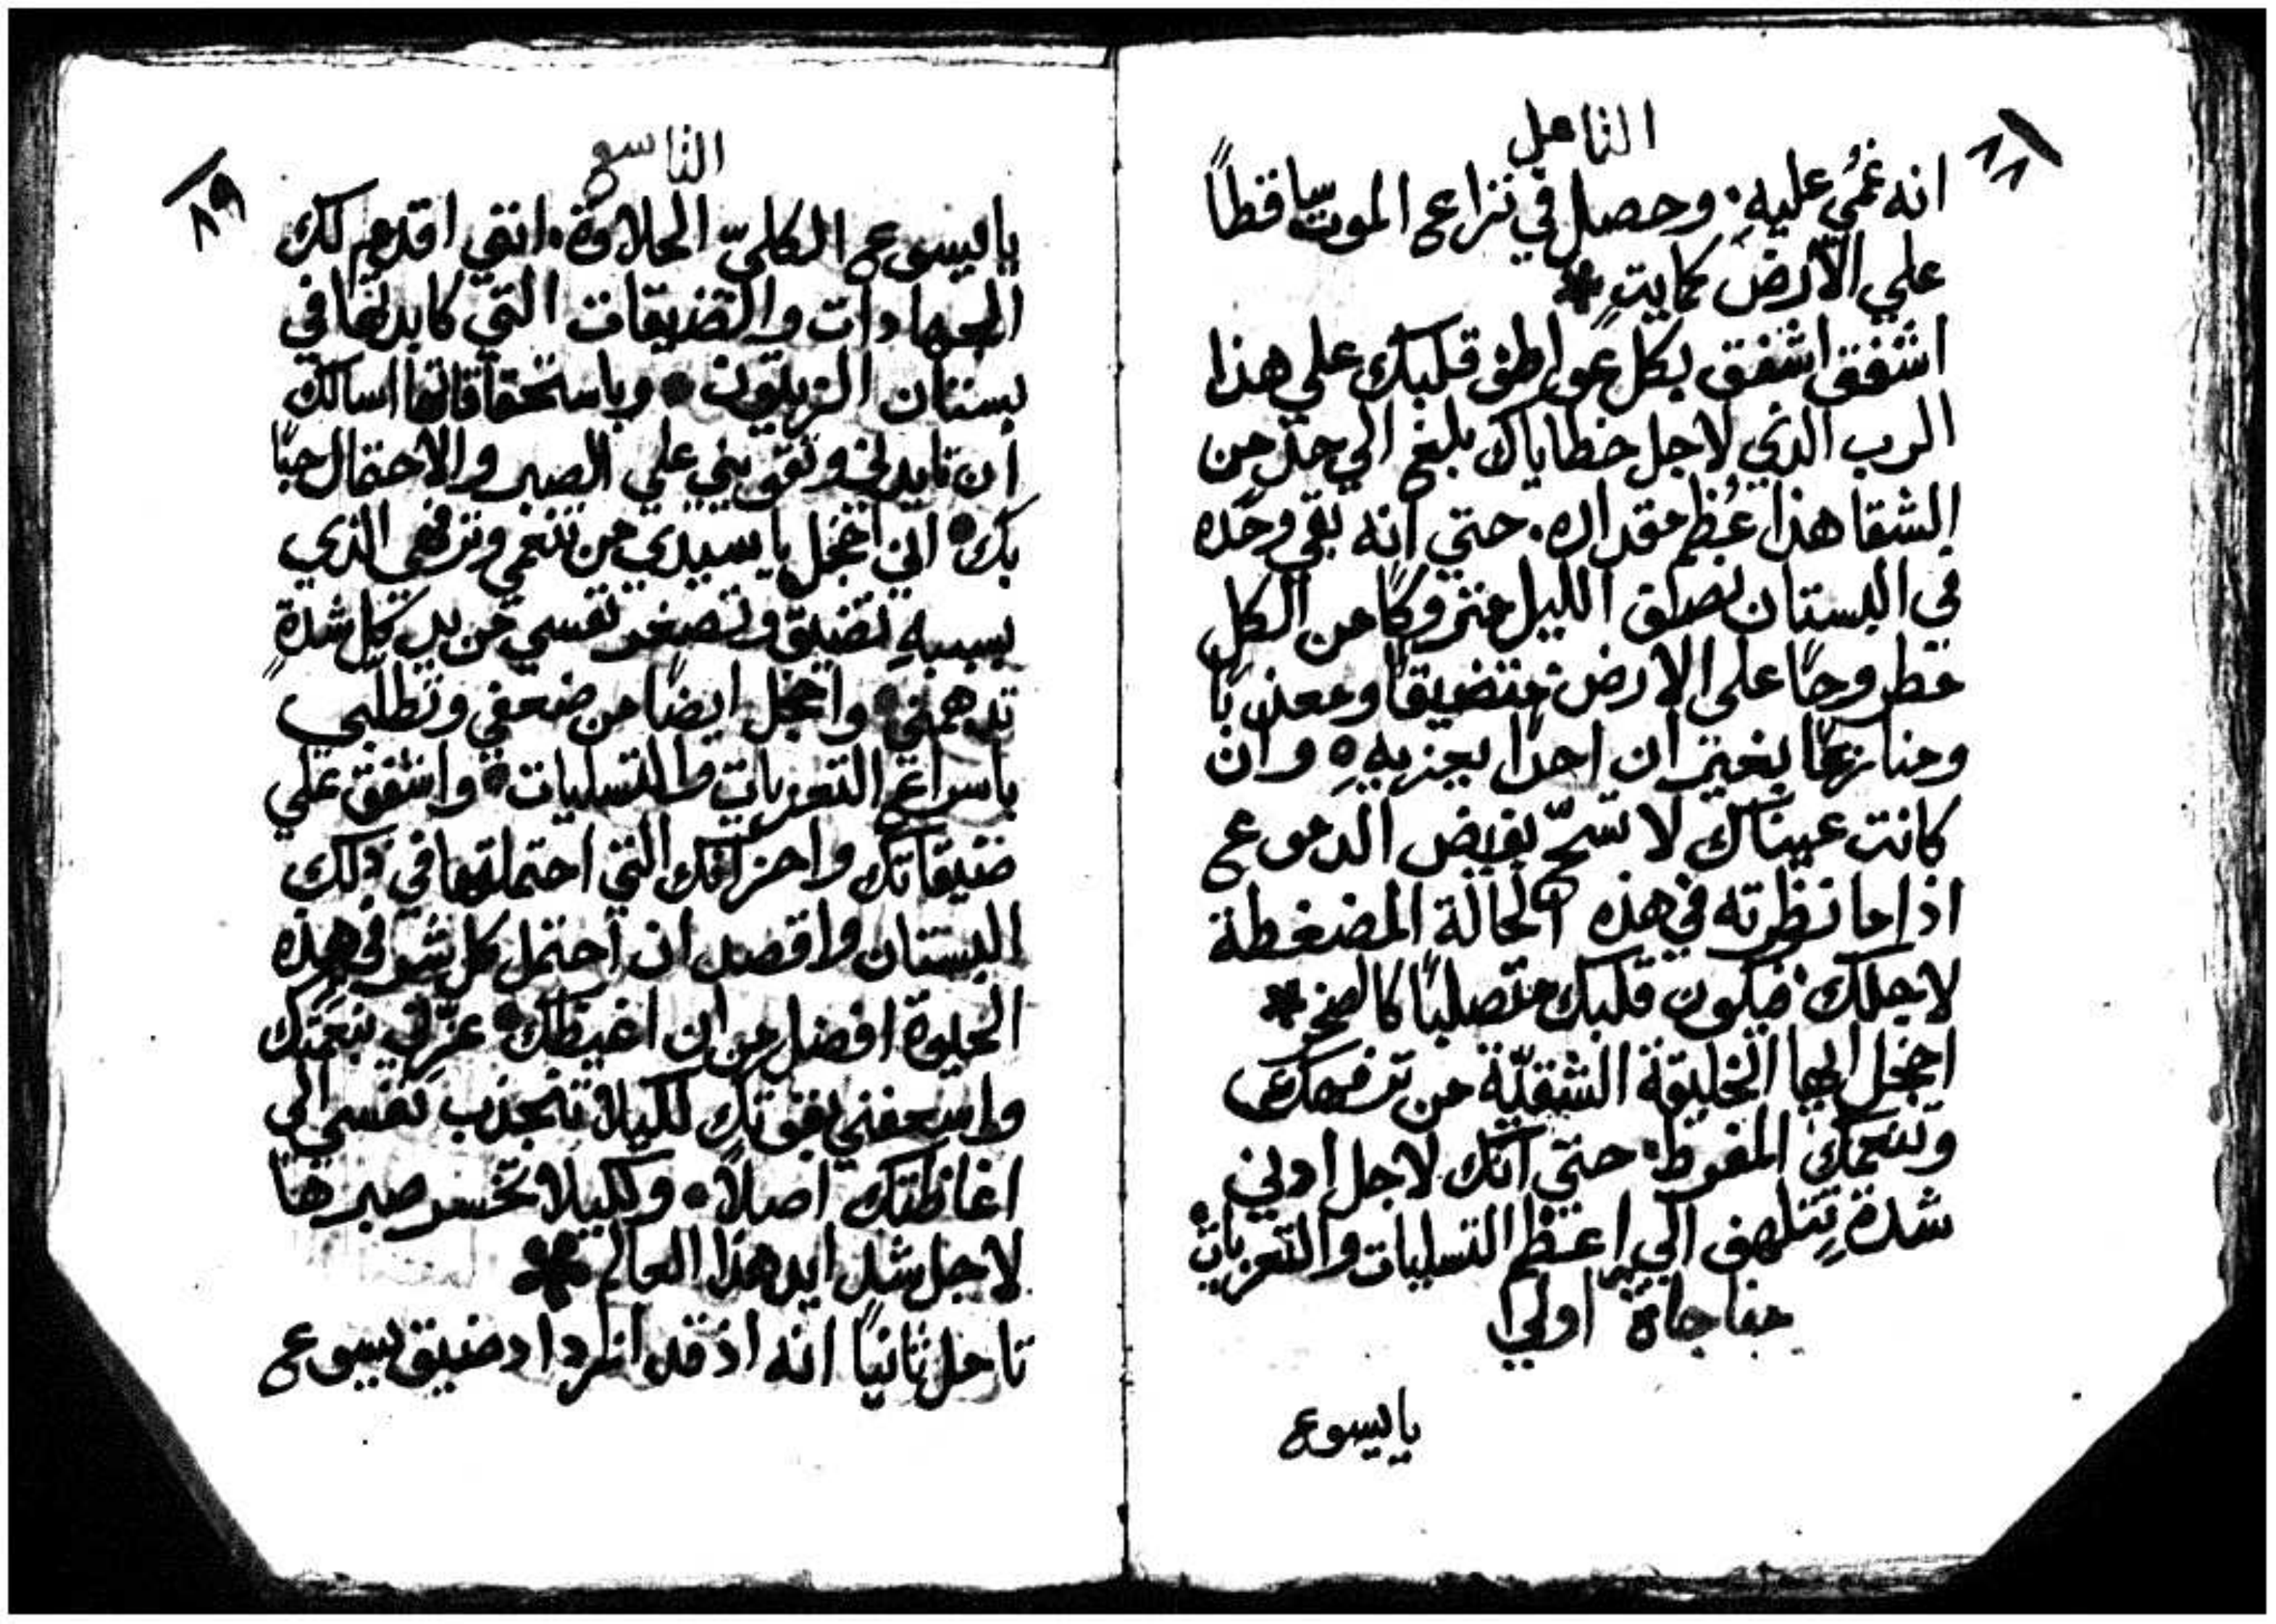 ٨٨
التامل
انه غُمي عليهِ. وحصل في نزاع الموت ساقطاً
علي الأرض كمايتٍ *
اشفق اشفق بكل عواطف قلبك علي هذا
الرب الذي لاجل خطاياك بلغ الي حدٍ من
الشقا هذا عُظم مقداره. حتي انه بقي وحده
في البستان بصلق الليل متروكاً من الكل
مطروحاً علي الارض متضيقاً ومعذباً
ومنازعًا بغير ان احدًا يعزيهِ. وان
كانت عيناك لا تسحّ بفيض الدموع
اذا ما نظرته في هذه الحالة المضغطة
لاجلك. فيكون قلبك متصلبًا كالصخر *
اخجل ايها الخليقة الشقيّة من ترفهك
وتنعمك المفرط. حتي انك لاجل ادني
شدةٍ تتلهف الي اعظم التسليات والتعزيات.
مناجاة اولي
يايسوع
٨٩
التاسع
يايسوع الكليّ الحلاوة. انني اقدم لك
الجهادات والتضيقات التي كابدتها في
بستان الزيتون. وباستحقاقاتها اسالك
ان تايدني وتقويني علي الصبر والاحتمال حبًا
بك. اني اخجل يا سيدي من تنعمي وترفهي الذي
بسببهِ تضيق وتصغر نفسي من كل شدةٍ
تدهمني. واخجل ايضًا من ضعفي وتطلبي
باسراع التعزيات والتسليات. واشفق علي
ضيقاتك واحزانك التي احتملتها في ذلك
البستان واقصد ان احتمل كل شر في هذه
الحيوة افضل من ان اغيظك. عزّني بنعمتك
واسعفني بقوتك لكيلا تنجذب نفسي الي
اغاظتك اصلاً. ولكيلا تخسر صبرها
لاجل شدايد هذا العالم *
تامل ثانيًا انه اذ قد ازداد ضيق يسوع